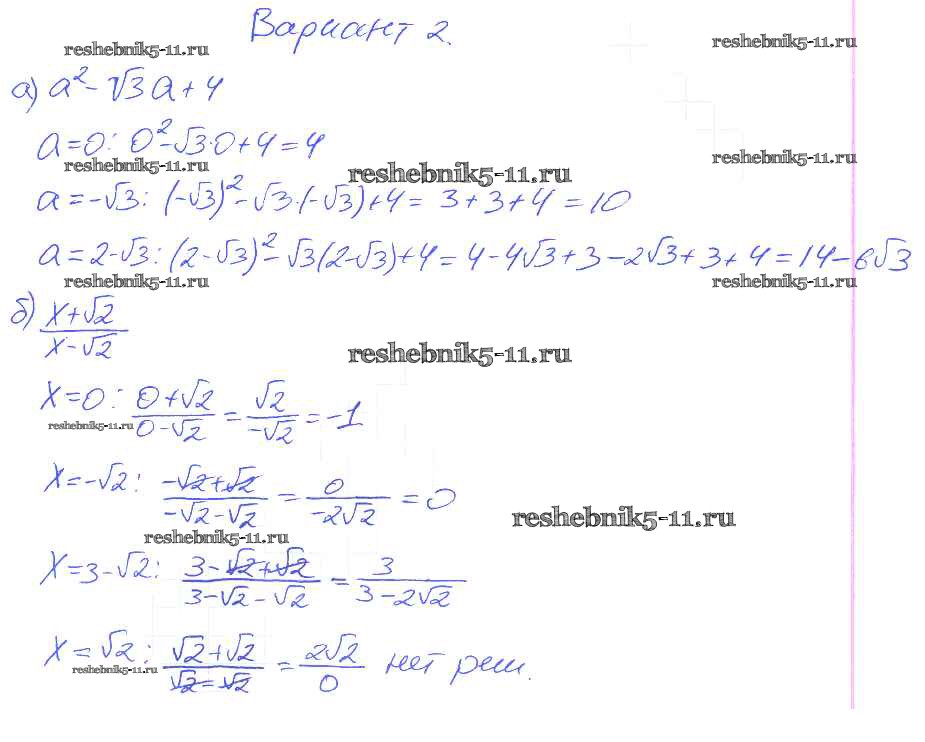 Вариант 2.
reshebnik5-11.ru reshebnik5-11.ru
а) a² - √3a + 4
a = 0: 0² - √3·0 + 4 = 4
reshebnik5-11.ru reshebnik5-11.ru reshebnik5-11.ru
a = -√3: (-√3)² - √3·(-√3) + 4 = 3 + 3 + 4 = 10
a = 2-√3: (2-√3)² - √3(2-√3) + 4 = 4 - 4√3 + 3 - 2√3 + 3 + 4 = 14 - 6√3
reshebnik5-11.ru reshebnik5-11.ru
б) (x+√2)/(x-√2)
reshebnik5-11.ru
x = 0: (0+√2)/(0-√2) = √2/(-√2) = -1
reshebnik5-11.ru
x = -√2: (-√2+√2)/(-√2-√2) = 0/(-2√2) = 0
reshebnik5-11.ru
reshebnik5-11.ru
x = 3-√2: (3-√2+√2)/(3-√2-√2) = 3/(3-2√2)
x = √2: (√2+√2)/(√2-√2) = 2√2/0 нет реш.
reshebnik5-11.ru